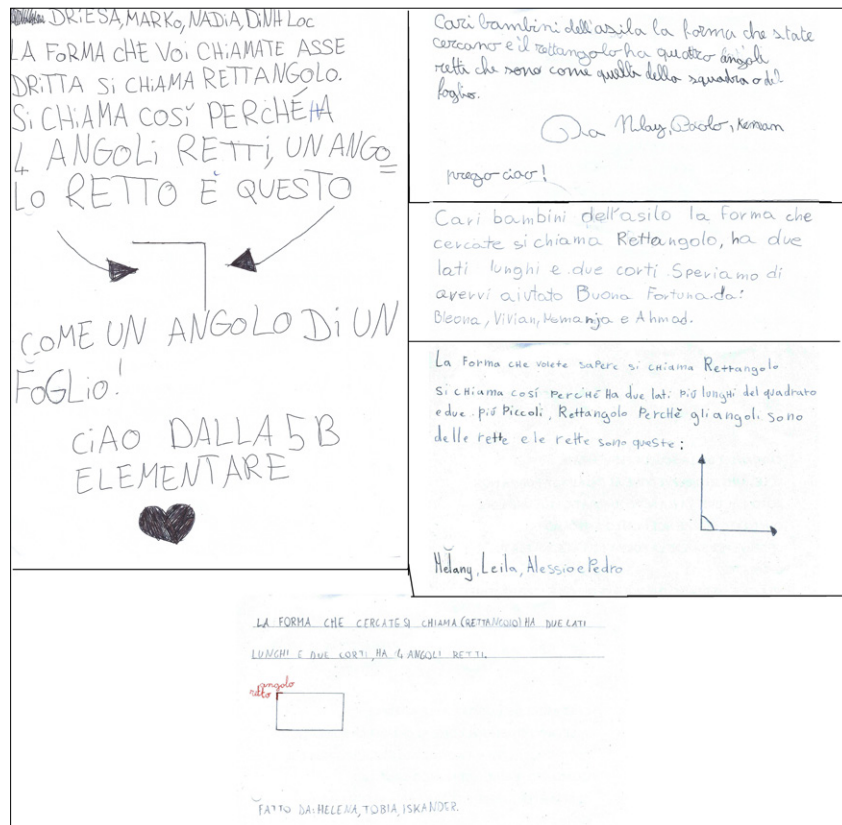 DRiESA, MARKO, NADiA, DiNH LOC
LA FORMA CHE VOi CHiAMATE ASSE
DRiTTA Si CHiAMA RETTANGOLO.
Si CHiAMA COSí PERCHÉ HA
4 ANGOLi RETTi, UN ANGO
LO RETTO È QUESTO
COME UN ANGOLO Di UN
FOGLiO!
CiAO DALLA 5 B
ELEMENTARE
Cari bambini dell'asila la forma che state
cercano e il rettangolo ha quattro angoli
retti che sono come quelli della squadra o del
foglio.
Da Nilay, Paolo, Kenan
prego ciao!
Cari bambini dell'asilo la forma che
cercate si chiama Rettangolo, ha due
lati lunghi e due corti. Speriamo di
avervi aiutato Buona Fortuna da:
Bleona, Vivian, Nemanja e Ahmad.
La forma che volete sapere si chiama Rettangolo
Si chiama cosí perché Ha due lati piú lunghi del quadrato
e due piú Piccoli, Rettangolo Perchè gli angoli sono
delle rette e le rette sono queste:
Melany, Leila, Alessio e Pedro
LA FORMA CHE CERCATE SI CHIAMA (RETTANGOLO) HA DUE LATI
LUNGHI E DUE CORTI, HA 4 ANGOLI RETTI.
angolo
retto
FATTO DA: HELENA, TOBIA, ISKANDER.